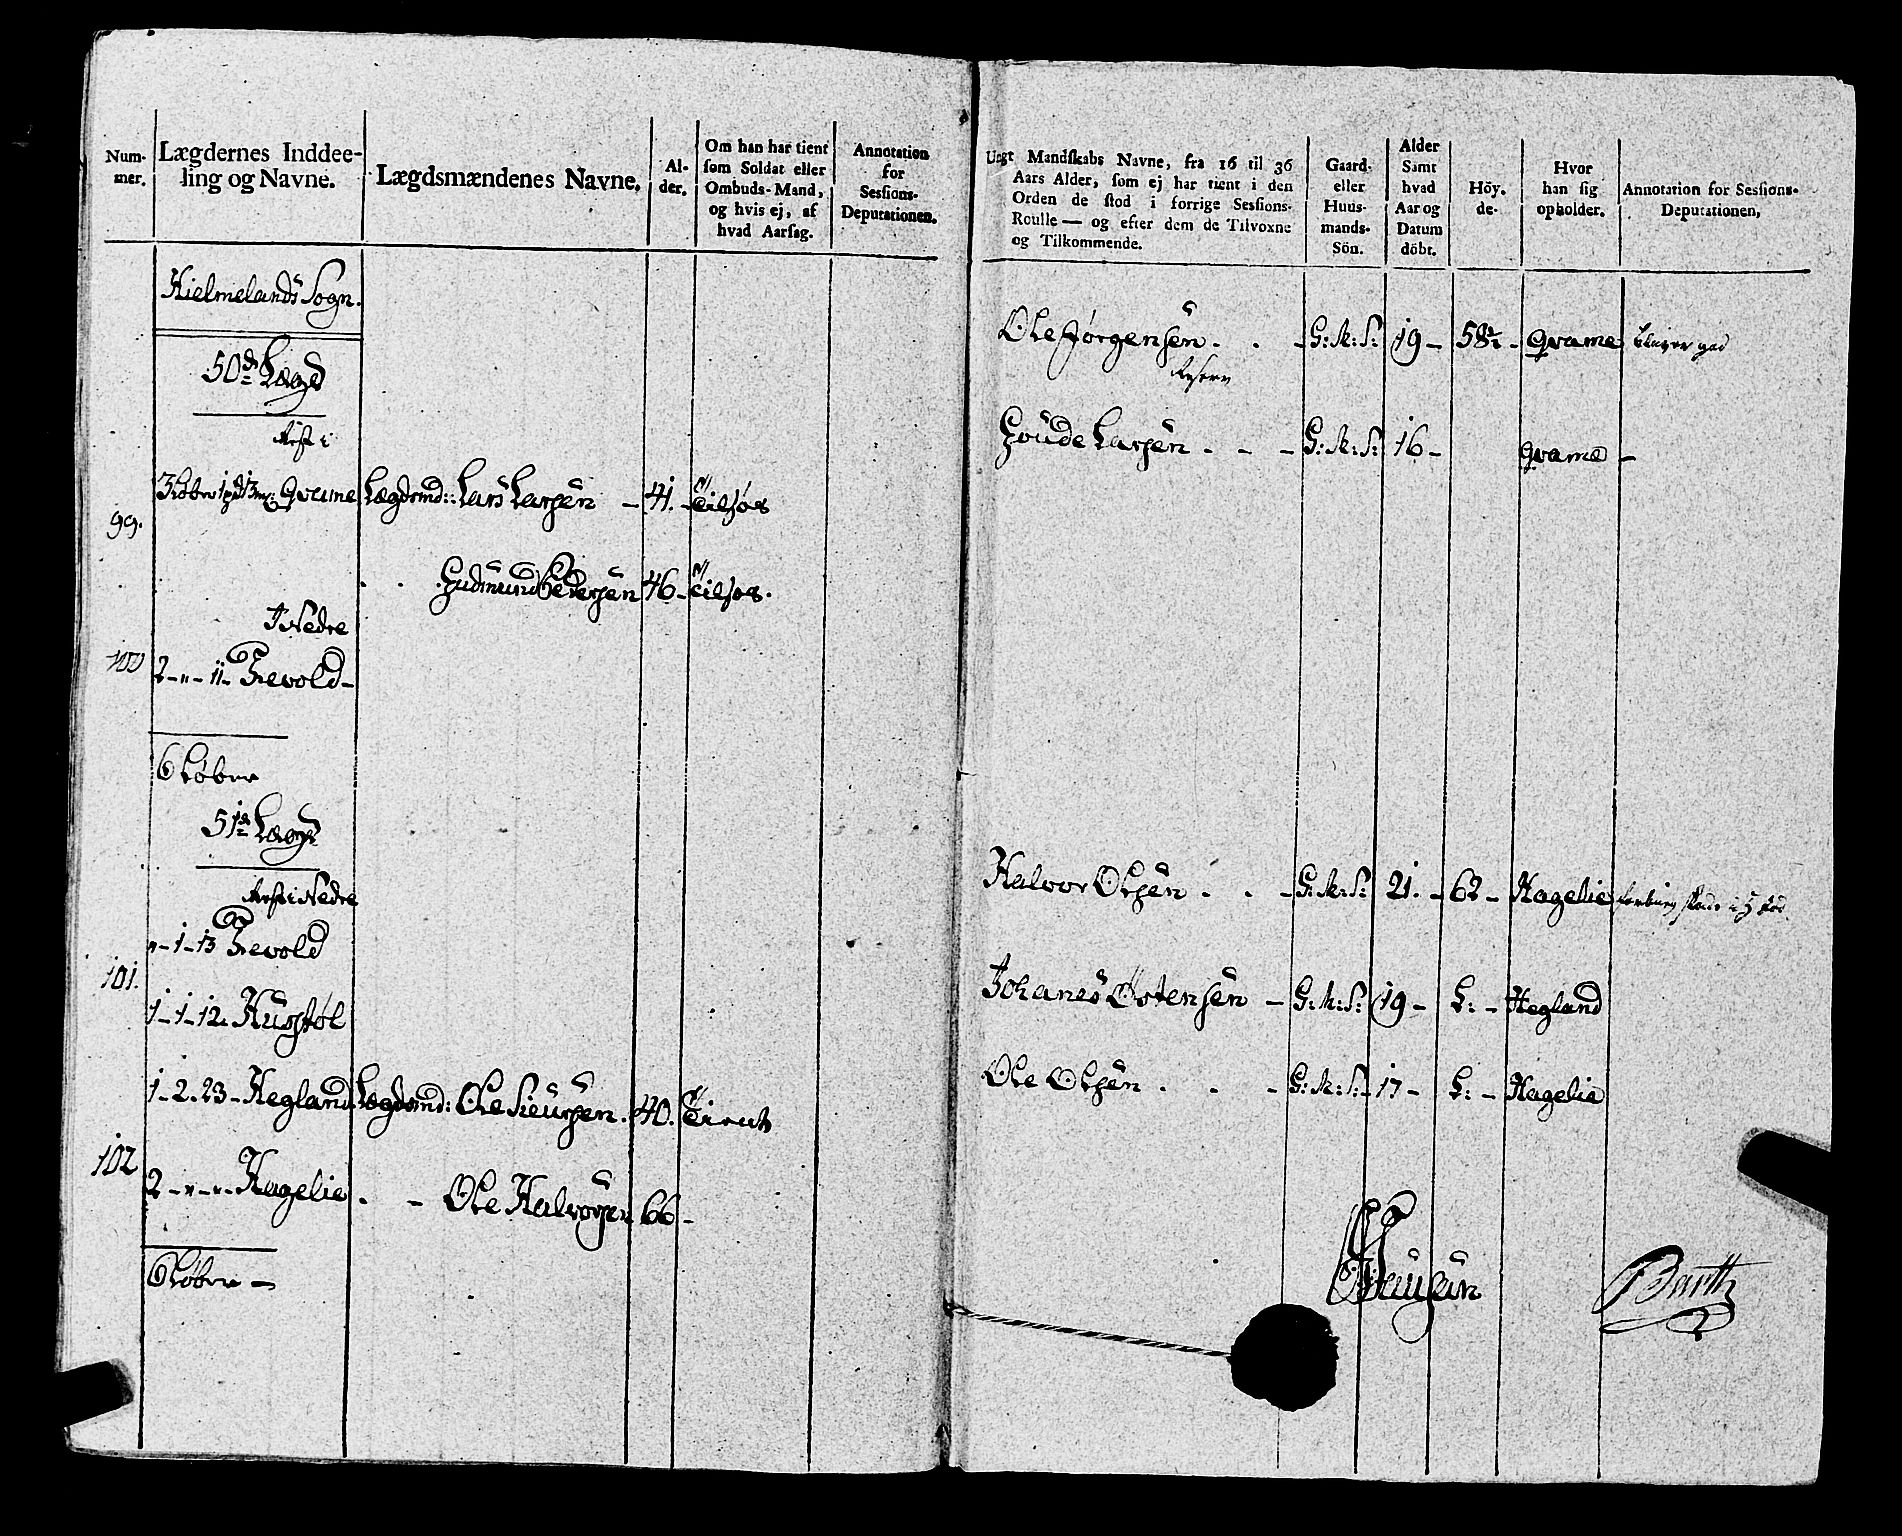 Num-
mer.
Lægdernes Inddee-
ling og Navne.
Lægdsmændenes Navne.
Al-
der.
Om han har tient
som Soldat eller
Ombuds-Mand,
og hvis ej, af
hvad Aarsag.
Annotation
for
Sessions-
Deputationen.
Hielmelands Sogn.
50de Lægd
99.
Qvame Lægdsmd: Lars Larsen - 41.
Gudmund Pedersen 46
I Nedre
100
2 - " - 11 - Trevold -
6 Løber
51de Lægd
Nedre
" - 1 - 13 Trevold
101.
1 - 1 - 12. Hustøl
1 - 2 - 23 - Hegland Lægdsmd: Ole Sieursen. 40.
102
2 - " - " - Hagelie - Ole Halvorsen 66 -
6 Løber -
Ungt Mandskabs Navne, fra 16 til 36
Aars Alder, som ej har tient i den
Orden de stod i forrige Sessions-
Roulle — og efter dem de Tilvoxne
og Tilkommende.
Gaard-
eller
Huus-
mands-
Sön.
Alder
Samt
hvad
Aar og
Datum
döbt.
Höy-
de-
Hvor
han sig
opholder.
Annotation for Sessions-
Deputationen,
Ole Jørgensen . . - G: M: S: 19 - 58½ - Qvame
Goude Larsen . - - G: M: S: 16 - Qvame -
Halvor Olsen . . - G: M: S: 21. - 62 - Hagelie
Johanes Østensen - G: M: S: 19 - L: - Hegland
Ole Olsen . - - G: M: S: 17 - L: - Hagelie
Barth